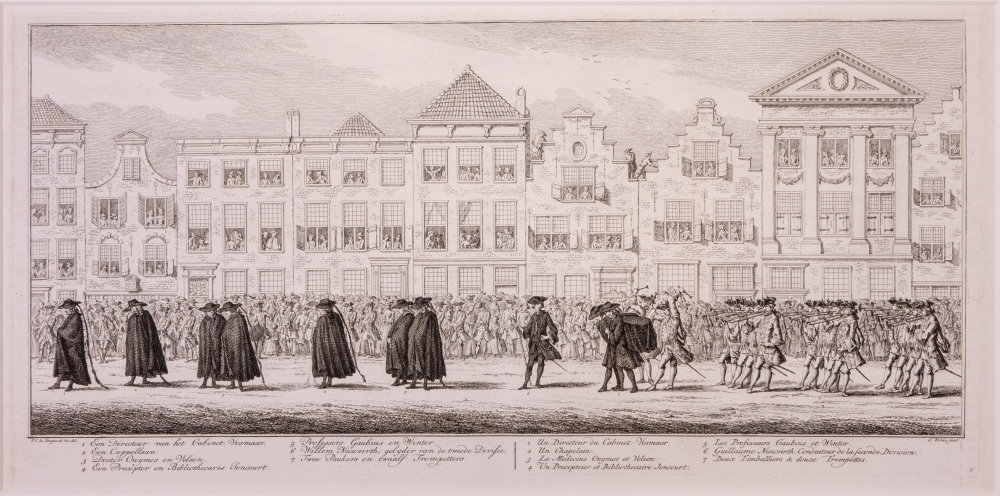 P. C. la Fargue ad viv. del.
1 Een Directeur van het Cabinet Vosmaar.
2 Een Cappellaan.
3 Doctor Onymos en Velsen.
4 Een Precepter en Bibliothecaris Joncourt.
5 Professors Gaubius en Winter
6 Willem Nieuwirth, gelyder van de tweede Divisie.
7 Twee Paukers en twaalf Trompetters
1. Un Directeur du Cabinet Vosmaar.
2 Un Chapelain.
3 Le Medecins Onymos et Velsen.
4 Un Precepteur et Bibliothecaire Joncourt.
5 Les Professeurs Gaubius et Winter.
6 Guillaume Nieuwirth, Conducteur de la seconde Division.
7 Deux Timballiers à douze Trompettes.
S. Fokke fecit